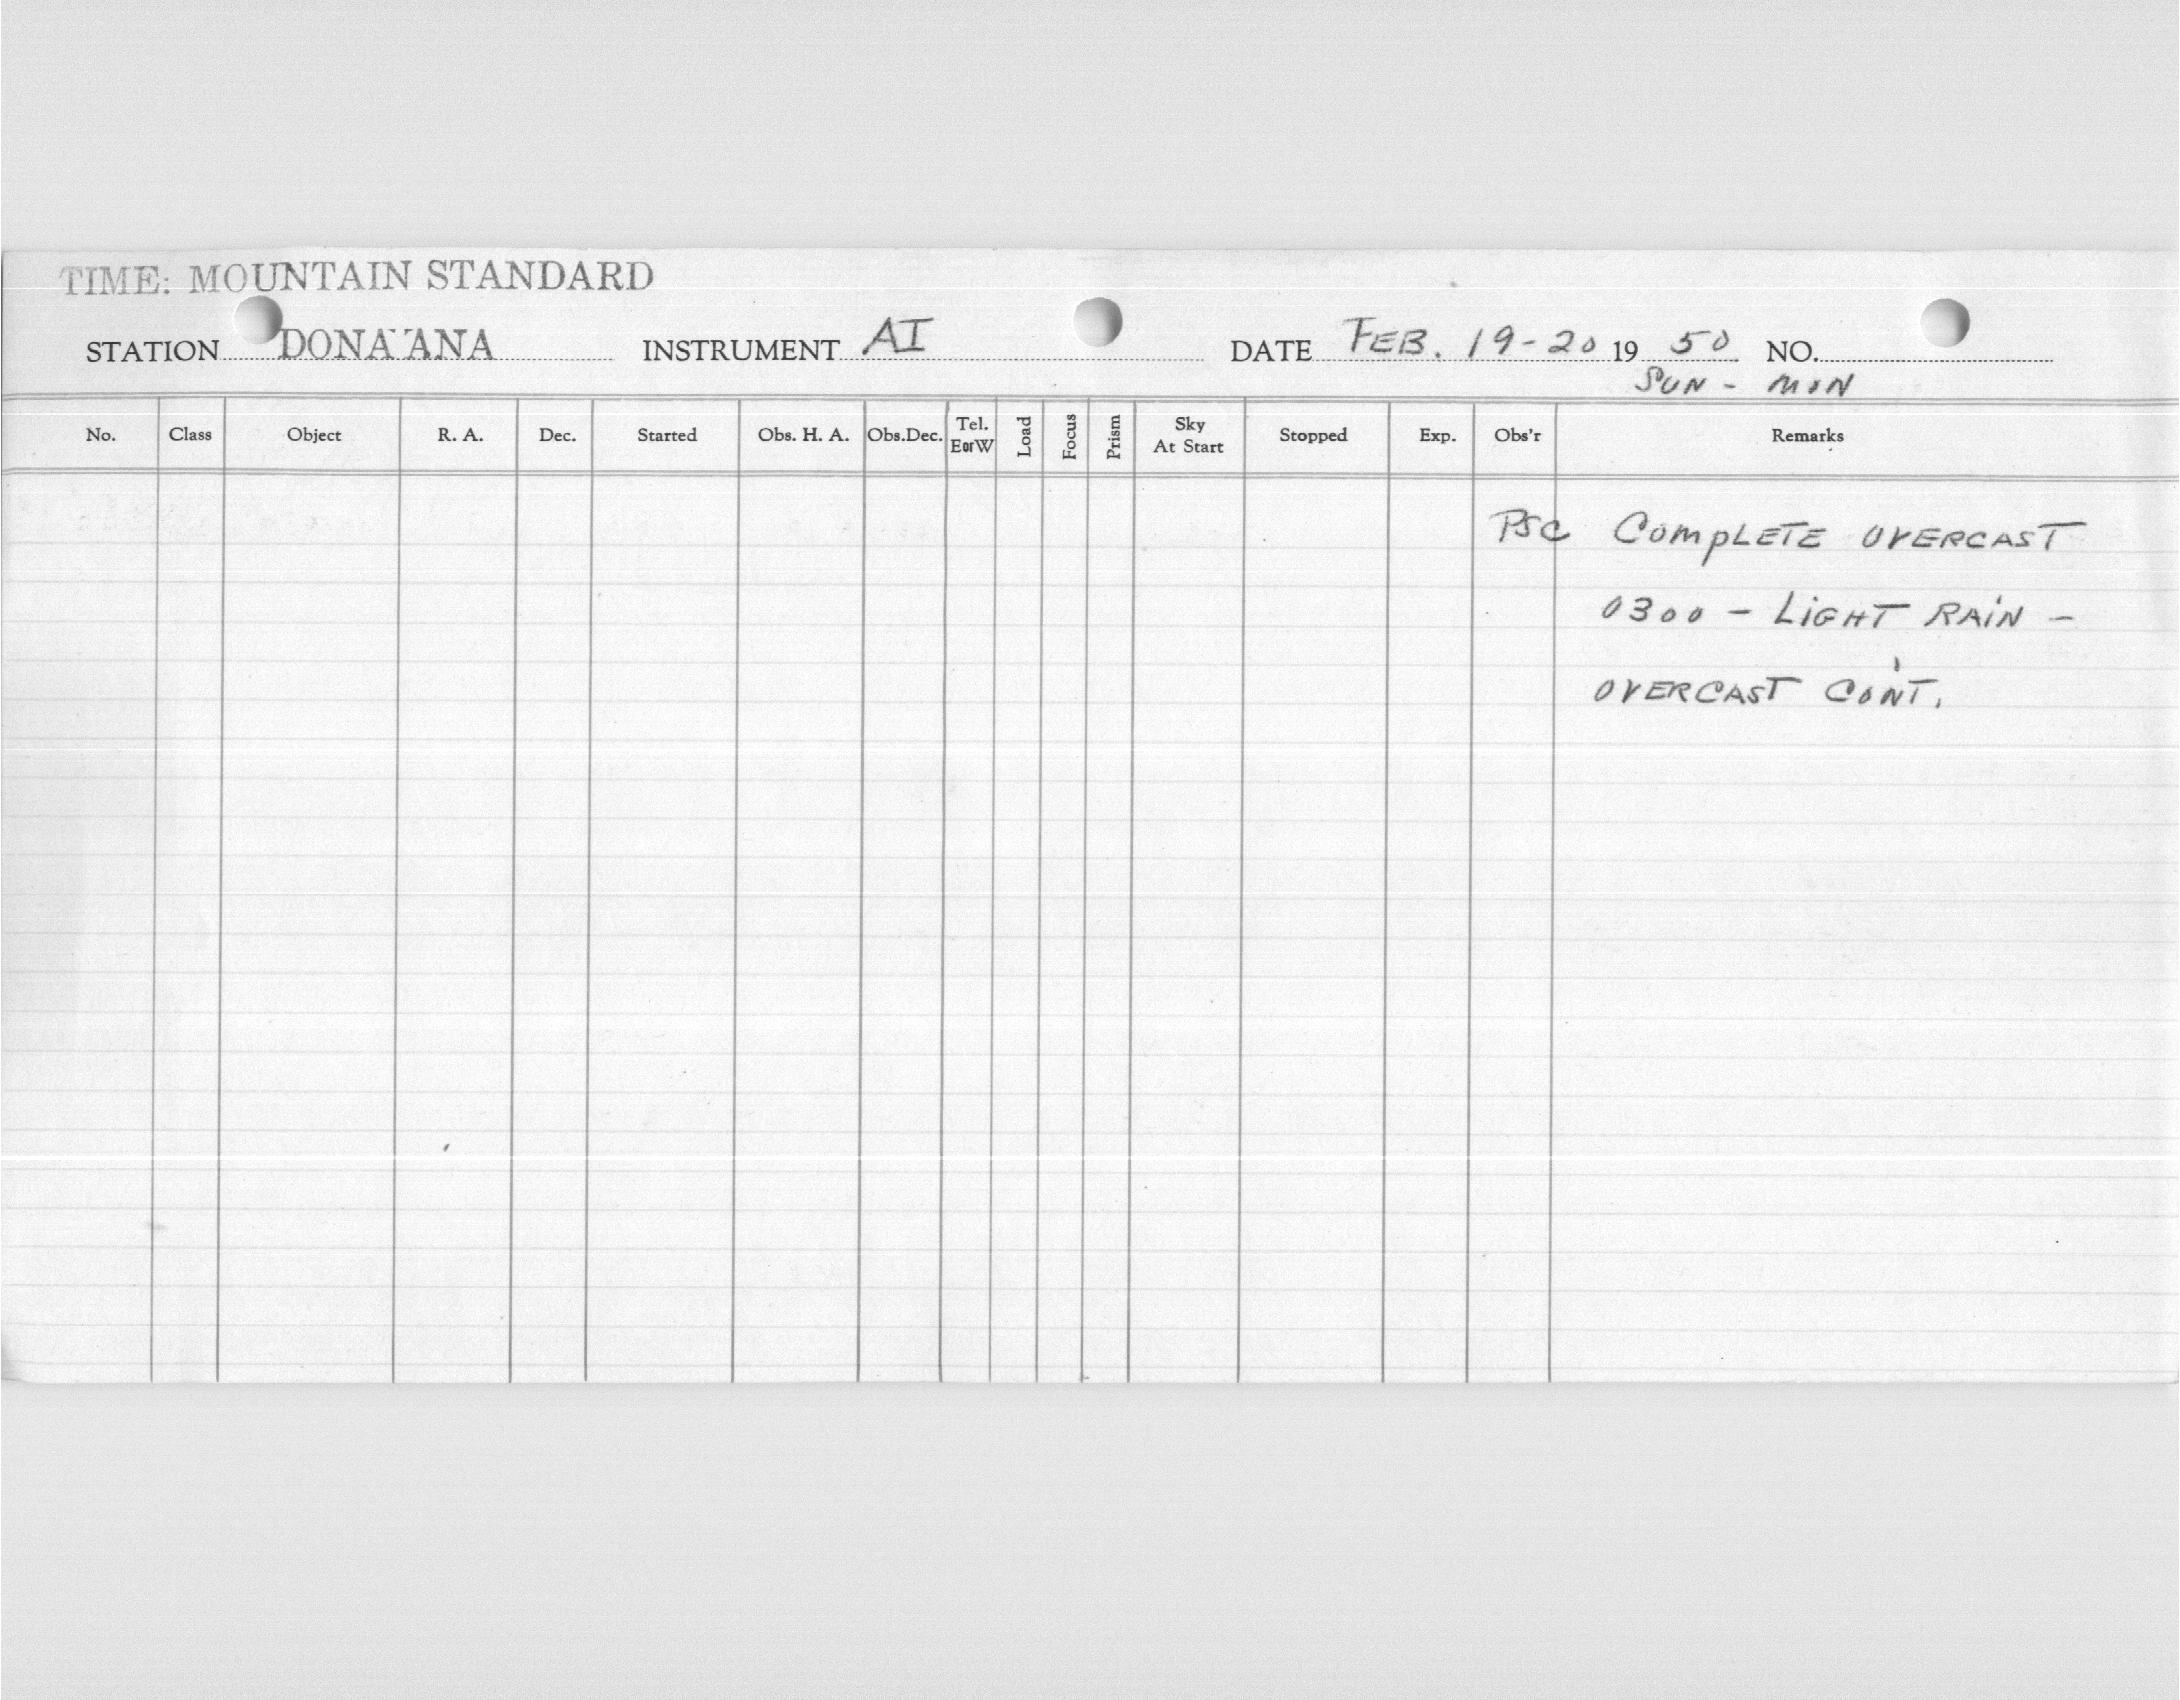 TIME: MOUNTAIN STANDARD
STATION DONA ANA INSTRUMENT AI DATE FEB. 19-20 19 50 NO.
SUN - MON
No. Class Object R. A. Dec. Started Obs. H. A. Obs.Dec. Tel. EorW Load Focus Prism Sky At Start Stopped Exp. Obs'r Remarks
PSC COMPLETE OVERCAST
0300 - LIGHT RAIN -
OVERCAST CON'T.